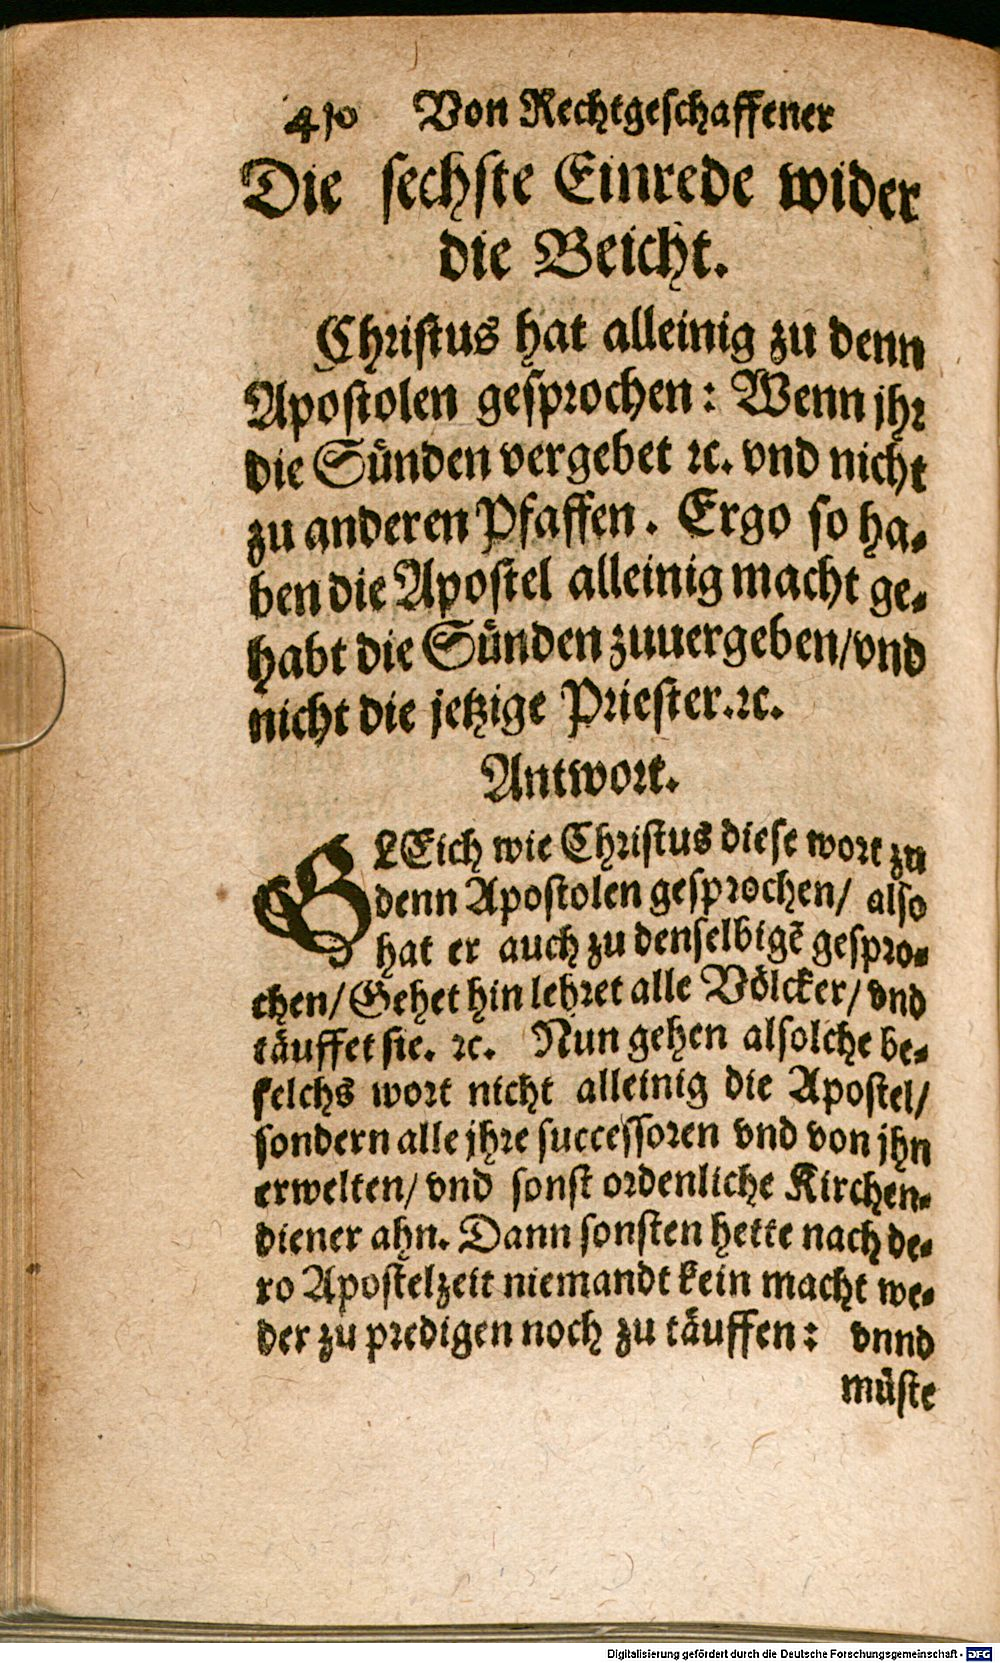 410 Von Rechtgeschaffener
Die sechste Einrede wider
die Beicht.
Christus hat alleinig zu denn
Apostolen gesprochen: Wenn jhr
die Sünden vergebet ꝛc. vnd nicht
zu anderen Pfaffen. Ergo so ha-
ben die Apostel alleinig macht ge-
habt die Sünden zuuergeben/vnd
nicht die jetzige Priester.ꝛc.
Antwort.
GLEich wie Christus diese wort zu
denn Apostolen gesprochen/ also
hat er auch zu denselbigẽ gespro-
chen/Gehet hin lehret alle Völcker/vnd
täuffet sie. ꝛc. Nun gehen alsolche be-
felchs wort nicht alleinig die Apostel/
sondern alle jhre successoren vnd von jhn
erwelten/ vnd sonst ordenliche Kirchen-
diener ahn. Dann sonsten hette nach de-
ro Apostelzeit niemandt kein macht we-
der zu predigen noch zu täuffen: vnnd
müste
Digitalisierung gefördert durch die Deutsche Forschungsgemeinschaft - DFG